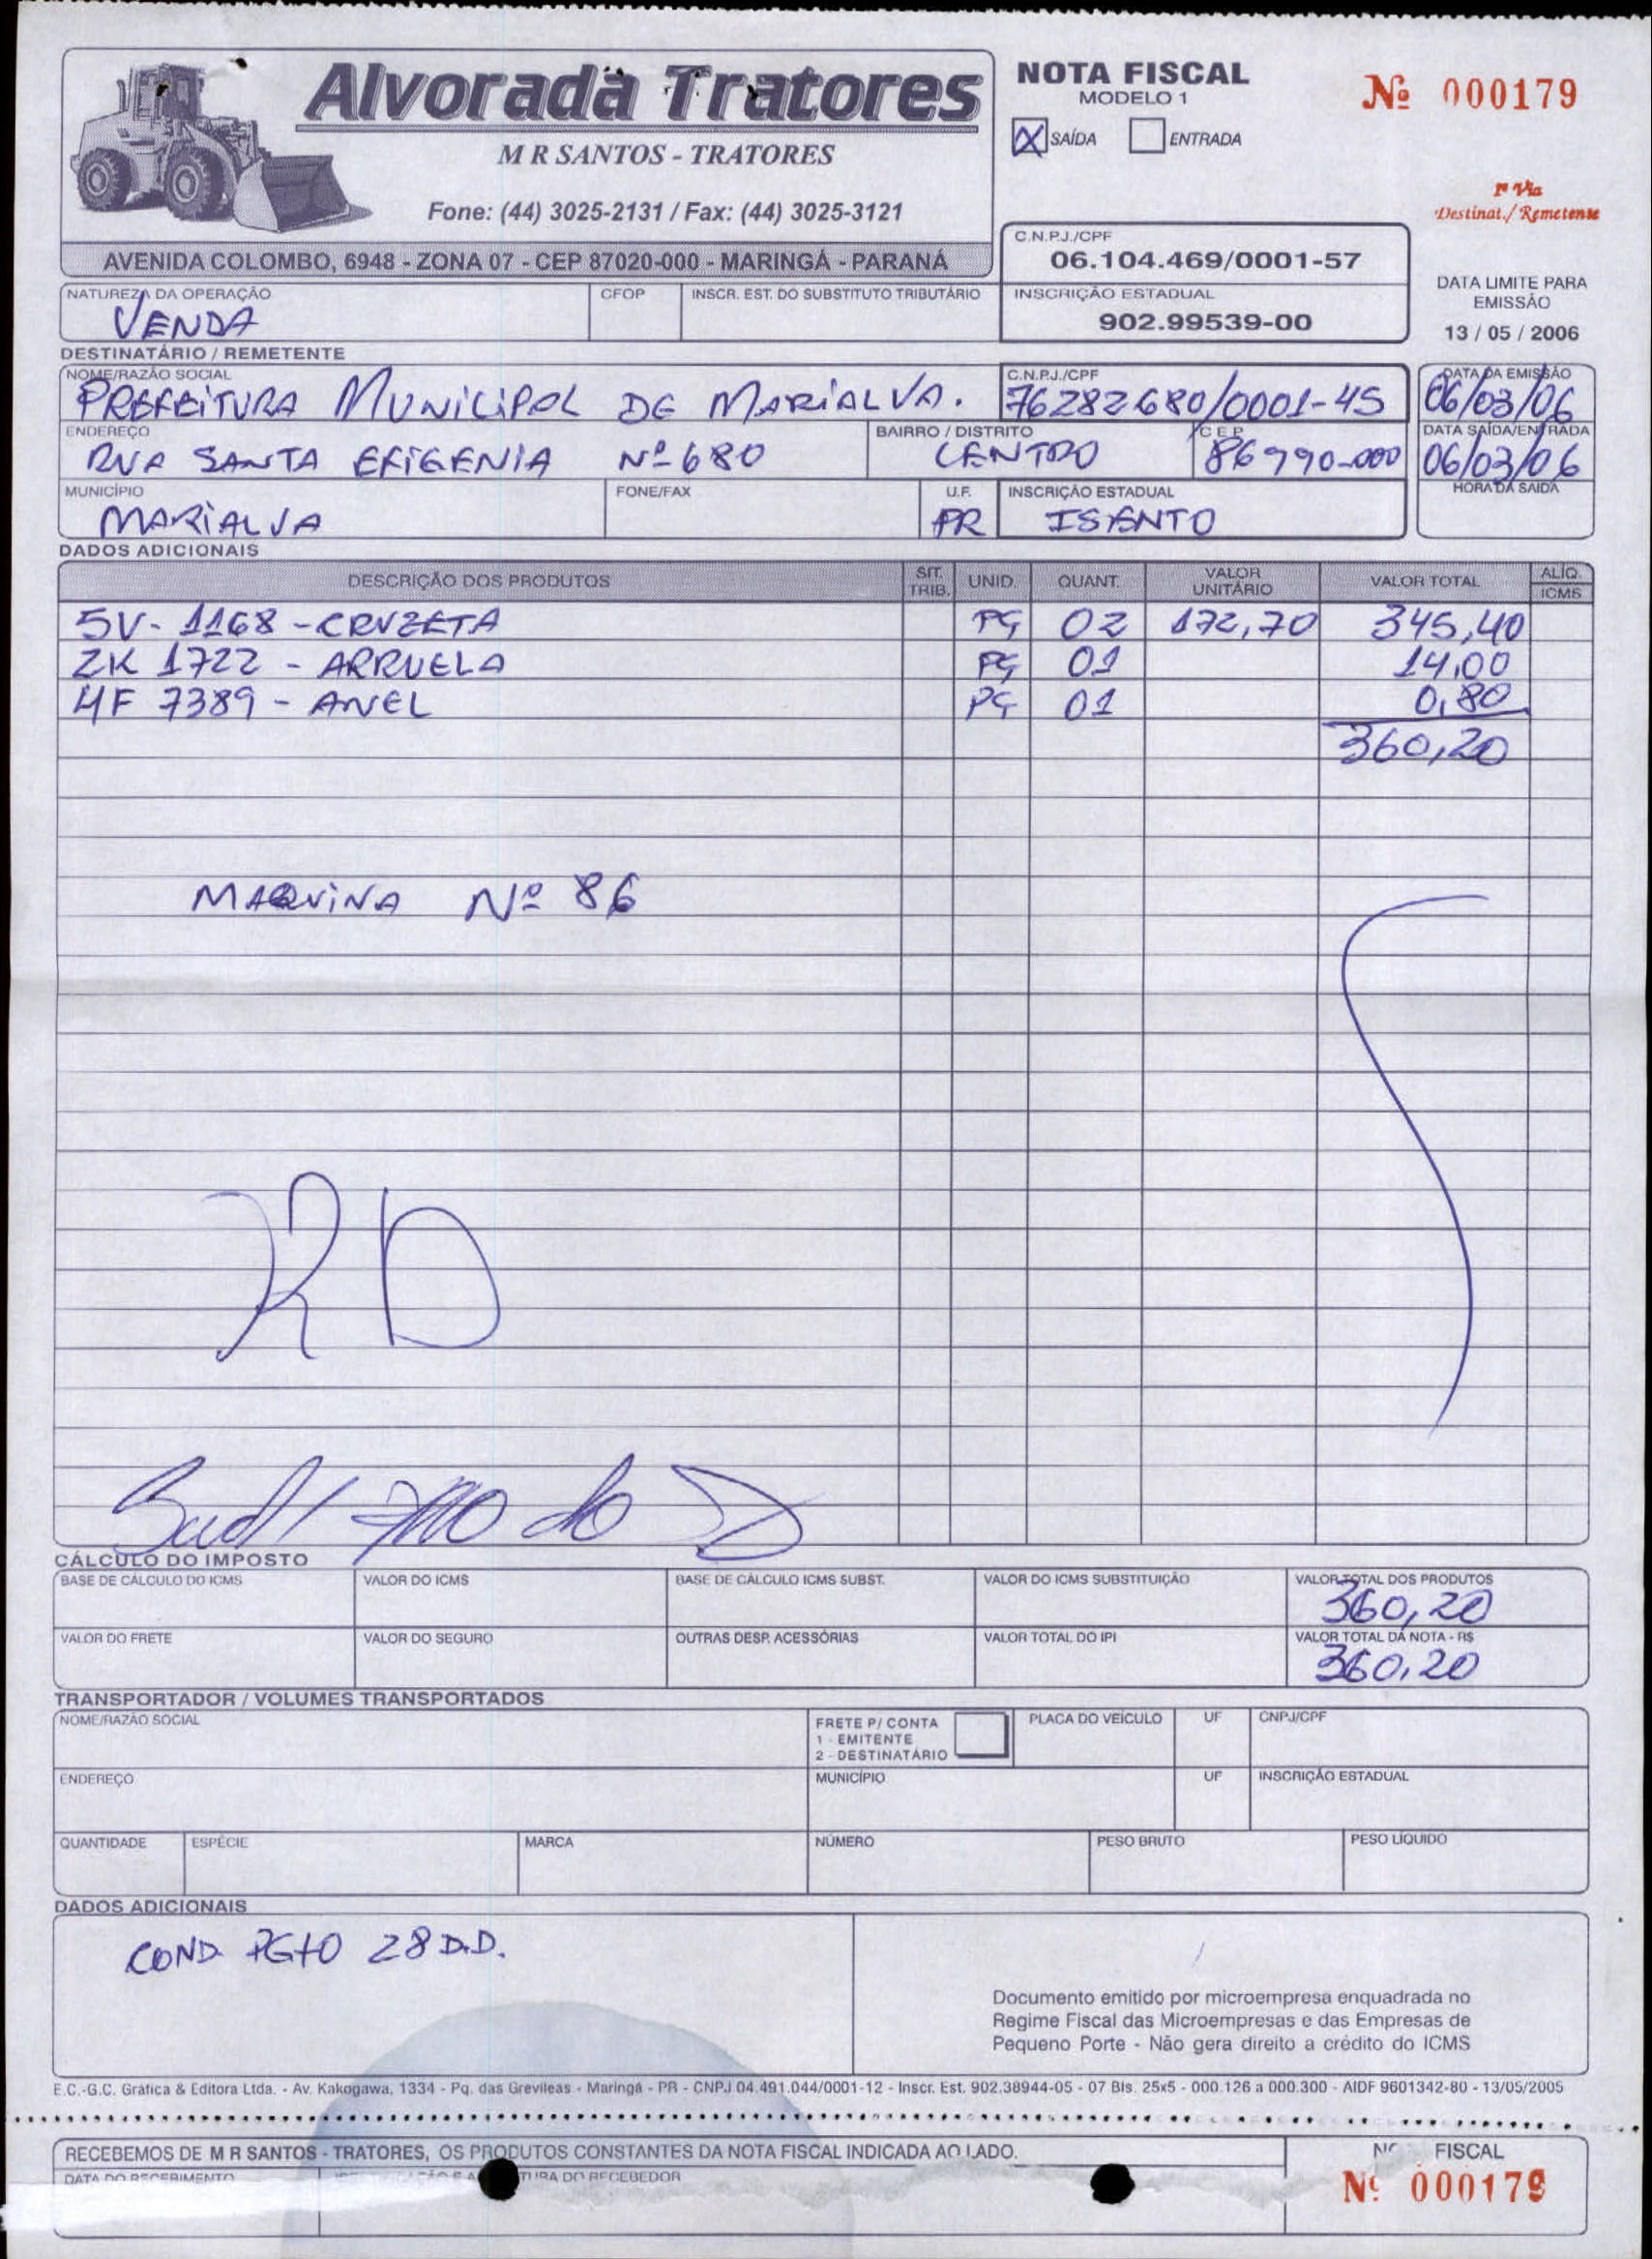 Alvorada Tratores
M R SANTOS - TRATORES
Fone: (44) 3025-2131 / Fax: (44) 3025-3121
AVENIDA COLOMBO, 6948 - ZONA 07 - CEP 87020-000 - MARINGÁ - PARANÁ
NOTA FISCAL
MODELO 1
X SAÍDA ENTRADA
Nº 000179
1ª Via
Destinat./ Remetente
C.N.P.J./CPF
06.104.469/0001-57
INSCRIÇÃO ESTADUAL
902.99539-00
DATA LIMITE PARA
EMISSÃO
13 / 05 / 2006
NATUREZA DA OPERAÇÃO CFOP INSCR. EST. DO SUBSTITUTO TRIBUTÁRIO
VENDA
DESTINATÁRIO / REMETENTE
NOME/RAZÃO SOCIAL C.N.P.J./CPF DATA DA EMISSÃO
PREFEITURA MUNICIPAL DE MARIALVA. 76282680/0001-45 06/03/06
ENDEREÇO BAIRRO / DISTRITO CEP DATA SAÍDA/ENTRADA
RUA SANTA EFIGENIA Nº 680 CENTRO 86990-000 06/03/06
MUNICÍPIO FONE/FAX U.F. INSCRIÇÃO ESTADUAL HORA DA SAIDA
MARIALVA PR ISENTO
DADOS ADICIONAIS
DESCRIÇÃO DOS PRODUTOS SIT. TRIB. UNID. QUANT. VALOR UNITÁRIO VALOR TOTAL ALÍQ. ICMS
5V- 1168 - CRUZETA PÇ 02 172,70 345,40
2K 1722 - ARRUELA PÇ 01 14,00
4F 7389 - ANEL PÇ 01 0,80
360,20
MAQUINA Nº 86
CÁLCULO DO IMPOSTO
BASE DE CÁLCULO DO ICMS VALOR DO ICMS BASE DE CÁLCULO ICMS SUBST. VALOR DO ICMS SUBSTITUIÇÃO VALOR TOTAL DOS PRODUTOS
360,20
VALOR DO FRETE VALOR DO SEGURO OUTRAS DESP. ACESSÓRIAS VALOR TOTAL DO IPI VALOR TOTAL DA NOTA - R$
360,20
TRANSPORTADOR / VOLUMES TRANSPORTADOS
NOME/RAZÃO SOCIAL FRETE P/ CONTA PLACA DO VEÍCULO UF CNPJ/CPF
1 - EMITENTE
2 - DESTINATÁRIO
ENDEREÇO MUNICÍPIO UF INSCRIÇÃO ESTADUAL
QUANTIDADE ESPÉCIE MARCA NÚMERO PESO BRUTO PESO LÍQUIDO
DADOS ADICIONAIS
COND. PGTO 28 D.D.
Documento emitido por microempresa enquadrada no
Regime Fiscal das Microempresas e das Empresas de
Pequeno Porte - Não gera direito a crédito do ICMS
E.C.-G.C. Gráfica & Editora Ltda. - Av. Kakogawa, 1334 - Pq. das Grevileas - Maringá - PR - CNPJ 04.491.044/0001-12 - Inscr. Est. 902.38944-05 - 07 Bls. 25x5 - 000.126 a 000.300 - AIDF 9601342-80 - 13/05/2005
RECEBEMOS DE M R SANTOS - TRATORES, OS PRODUTOS CONSTANTES DA NOTA FISCAL INDICADA AO LADO.
FISCAL
DATA DO RECEBIMENTO DO RECEBEDOR
Nº 000179